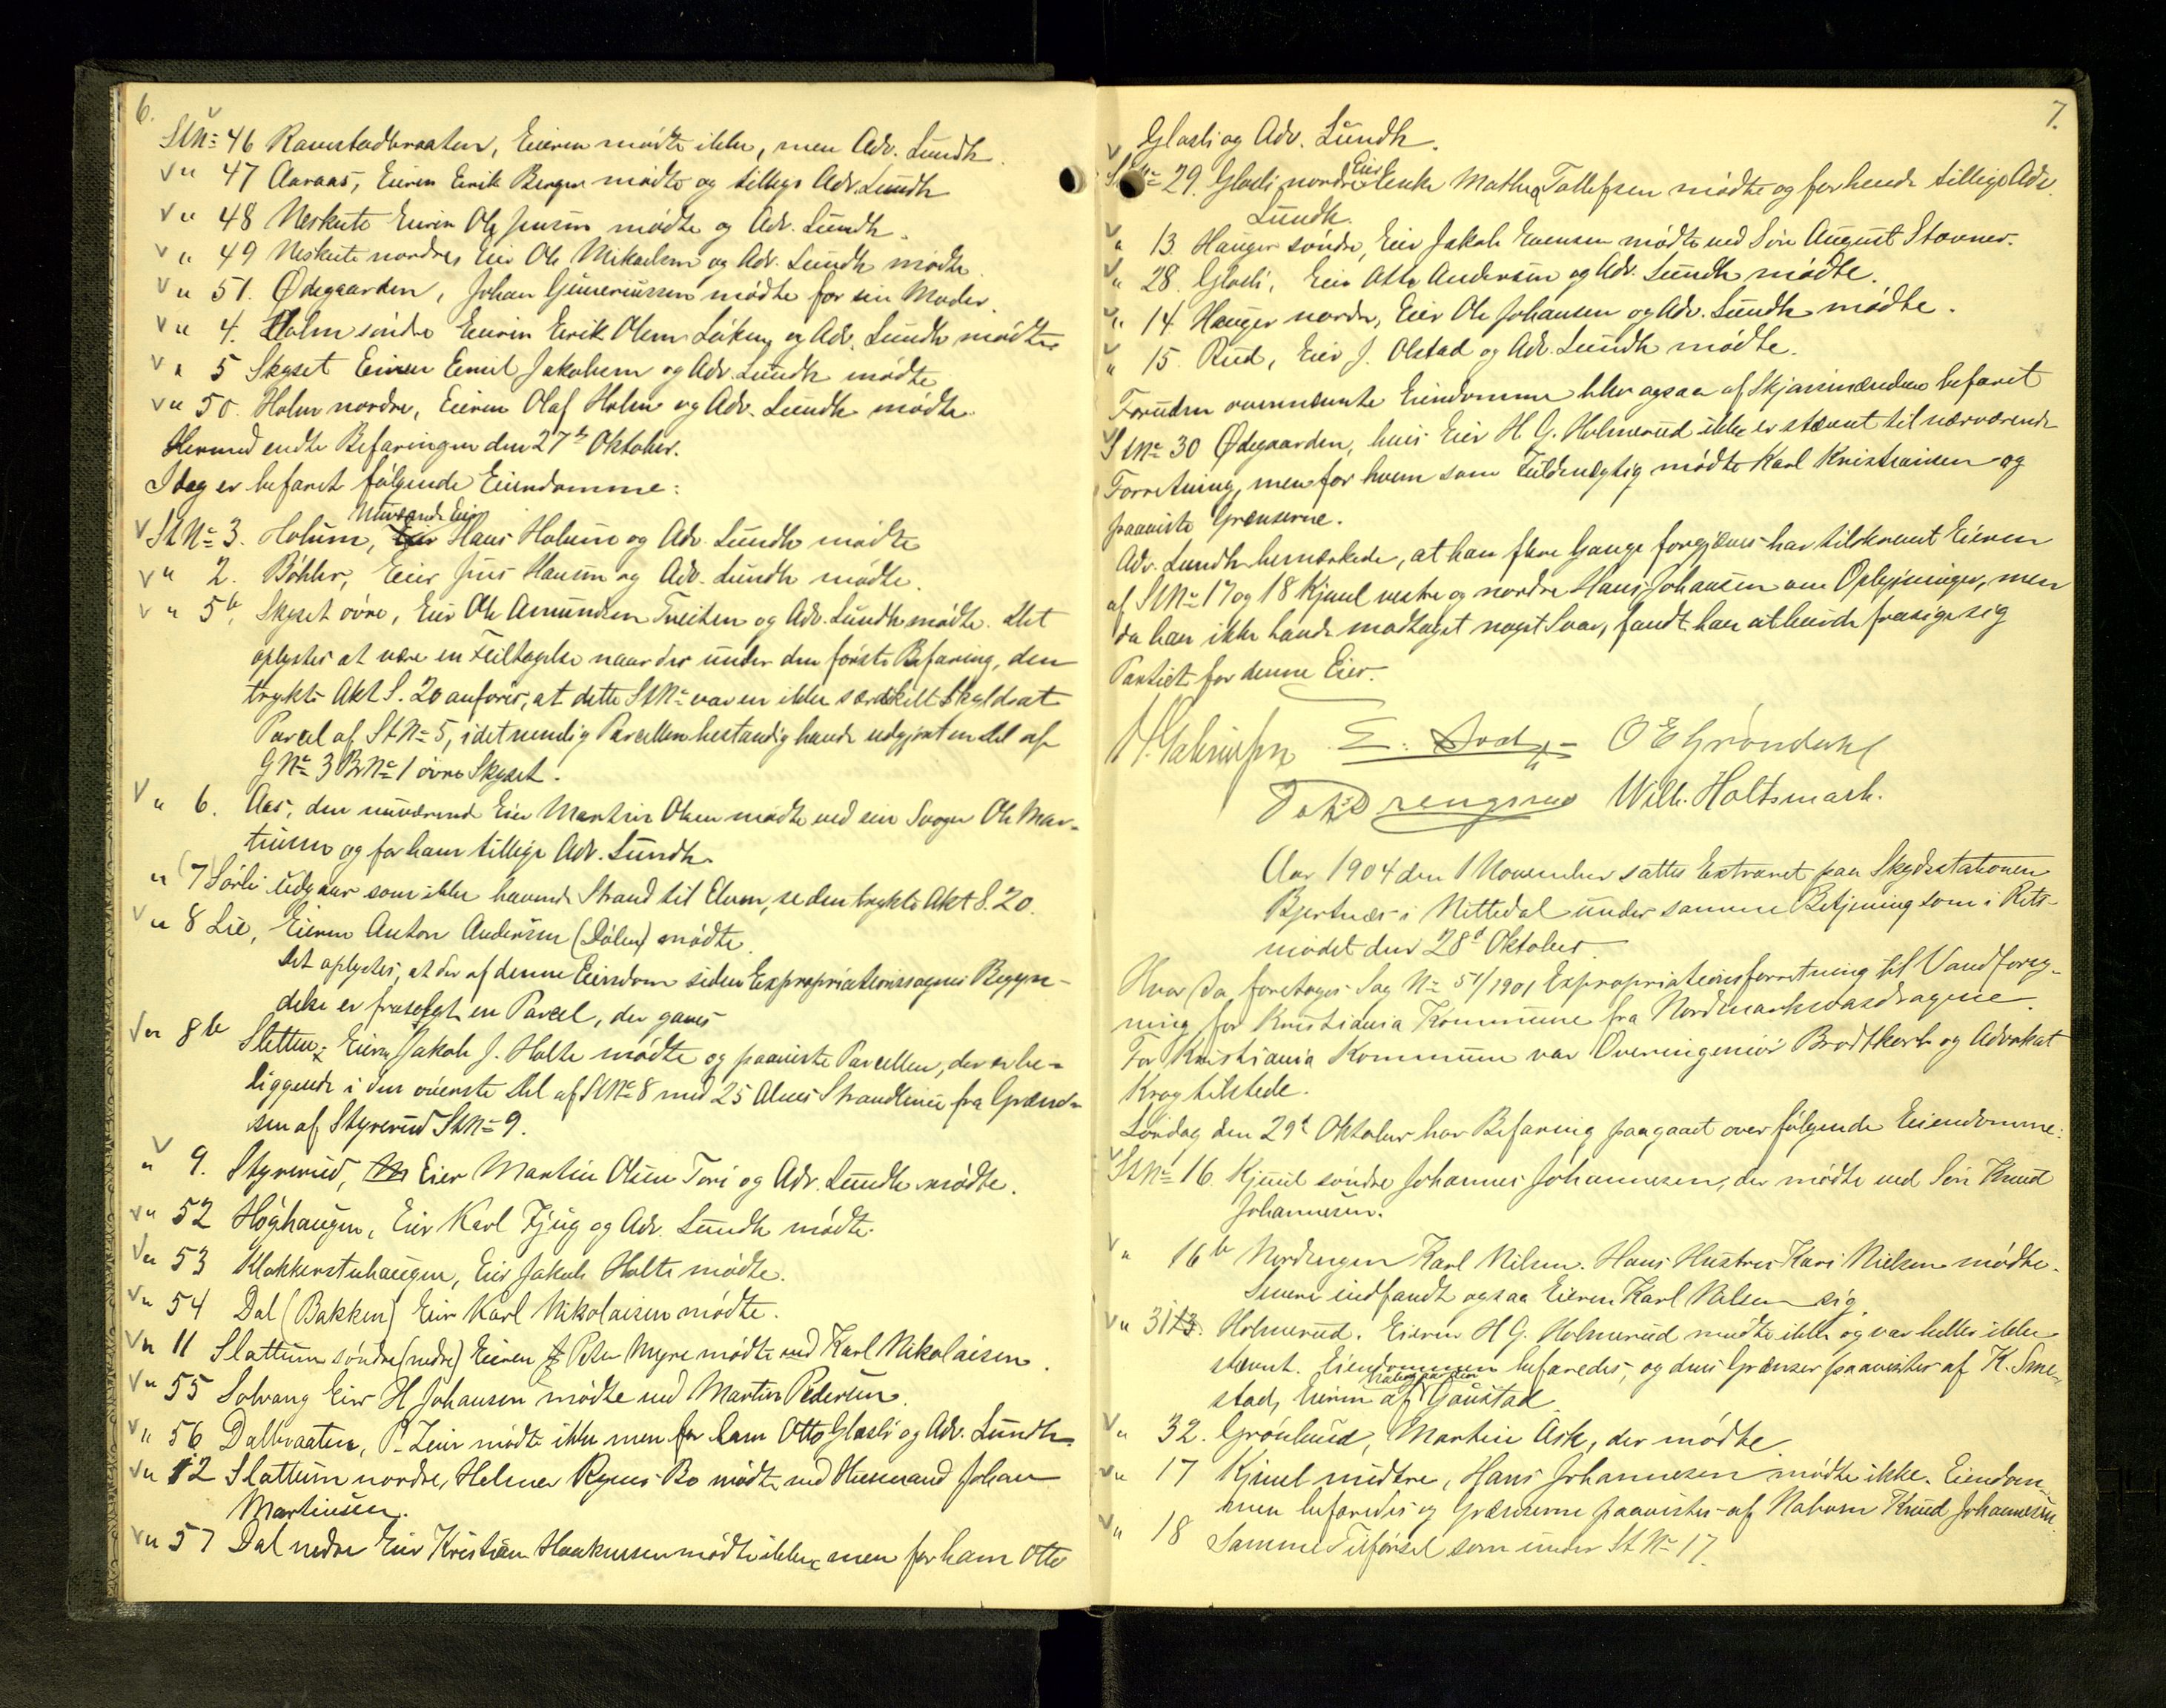 6.
St.№ 46 Ramstadbraaten, Eieren mødte ikke, men Adv. Lundh.
" 47 Aaraas, Eieren Eirik Berger mødte og tillige Adv. Lundh
" 48 Neskute Eieren Ole Jensen mødte og Adv. Lundh.
" 49 Neskute nordre, Eier Ole Mikaelsen og Adv. Lundh mødte.
" 51. Ødegaarden, Johan Guneriussen mødte for sin Moder.
" 4. Holm søndre Eieren Eirik Olsen Løken og Adv. Lundh mødte.
" 5 Skyset Eieren Emil Jakobsen og Adv. Lundh mødte
" 50. Holm nordre, Eieren Olaf Holm og Adv. Lundh mødte.
Hermed endte Befaringen den 27de Oktober.
Idag er befaret følgende Eiendomme:
St.№ 3. Holum, nuværende Eier Hans Holum og Adv. Lundh mødte
" 2. Bøhler, Eier Jens Hansen og Adv. Lundh mødte.
" 5b. Skyset øvre, Eier Ole Amundsen Tveiten og Adv. Lundh mødte. Det
oplystes at være en Feiltagelse naar der under den første Befaring, den
trykte Akt S. 20 anføres, at dette St№ var en ikke særskilt skyldsat
Parcel af St№ 5, idet nemlig Parcellen bestandig havde udgjort en Del af
G№ 3 B№ 1 øvre Skyset.
" 6. Aas, den nuværende Eier Martin Olsen mødte ved sin Svoger Ole Mar-
tinsen og for ham tillige Adv. Lundh.
" (7) Sørli udgaar som ikke havende Strand til Elven, se den trykte Akt S. 20.
" 8 Lie, Eieren Anton Andersen (Dølen) mødte.
Det oplystes, at der af denne Eiendom siden Expropriationssagens Begyn-
delse er frasolgt en Parcel, der gaves
" 8b Sletten; Eieren Jakob J. Holte mødte og paaviste Parcellen, der er be-
liggende i den øverste Del af St№ 8 med 25 Alens Strandlinie fra Grænd-
sen af Styrerud St№ 9.
" 9. Styrerud, Eier Martin Olsen Tøri og Adv. Lundh mødte.
" 52 Høghaugen, Eier Karl Fjug og Adv. Lundh mødte.
" 53 Klokkerstuhaugen, Eier Jakob Holte mødte.
" 54 Dal (Bakken) Eier Karl Nikolaisen mødte.
" 11 Slattum søndre (nedre) Eieren Peter Myre mødte ved Karl Nikolaisen.
" 55 Solvang Eier H Johansen mødte ved Martin Pedersen.
" 56 Dalbraaten, P. Lier mødte ikke men for ham Otto Glasli og Adv. Lundh.
" 12 Slattum nordre, Helmer Ryens Bo mødte ved Husmand Johan
Martinsen.
" 57 Dal nedre Eier Kristian Haakensen mødte ikke, men for ham Otto
7.
Glasli og Adv. Lundh.
St№ 29. Glasli nordre Eier Enke Mathea Tollefsen mødte og for hende tillige Adv.
Lundh.
" 13 Hauger søndre, Eier Jakob Evensen mødte ved Søn August Stovner.
" 28. Glasli, Eier Otto Andersen og Adv. Lundh mødte.
" 14 Hauger nordre, Eier Ole Johansen og Adv. Lundh mødte.
" 15. Rud, Eier J. Olstad og Adv. Lundh mødte.
Foruden ovennævnte Eiendomme blev ogsaa af Skjønsmændene befaret
St№ 30 Ødegaarden, hvis Eier H G. Holmerud ikke er stævnt til nærværende
Forretning, men for hvem som Fuldmægtig mødte Karl Kristiansen og
paaviste Grænserne.
Adv. Lundh bemærkede, at han flere Gange forgjæves har tilskrevet Eieren
af St№ 17 og 18 Kjuul vestre og nordre Hans Johansen om Oplysninger, men
da han ikke havde modtaget noget Svar, fandt han at burde frasige sig
Partiet for denne Eier.
O E Grøndahl
Wilh. Holtsmark.
Aar 1904 den 1 November sattes Extraret paa Skydsstationen
Bjertnæs i Nittedal under samme Betjening som i Rets-
mødet den 28de Oktober
Hvor da, foretoges Sag № 51/1901 Expropriationsforretning til Vandforsy-
ning for Kristiania Kommune fra Nordmarksvasdragene.
For Kristiania Kommune var Overingeniør Brodtkorb og Advokat
Krog tilstede.
Lørdag den 29de Oktober har Befaring paagaaet over følgende Eiendomme:
St№ 16. Kjuul søndre Johannes Johannesen, der mødte ved Søn Knud
Johannesen.
" 16b Nordengen Karl Nilsen. Hans Hustru Kari Nielsen mødte.
Senere indfandt ogsaa Eieren Karl Nilsen sig.
" 31 Holmerud. Eieren H G. Holmerud mødte ikke og var heller ikke
stævnt. Eiendommen befaredes, og dens Grænser paavistes af K. Sme-
stad, Eieren af Nabogaarden Gaustad.
" 32. Grønlund, Martin Ask, der mødte
" 17 Kjuul midtre, Hans Johannesen mødte ikke. Eiendom-
men befaredes og Grænserne paavistes af Naboen Knud Johannesen.
" 18 Samme Tilførsel som under St№ 17.